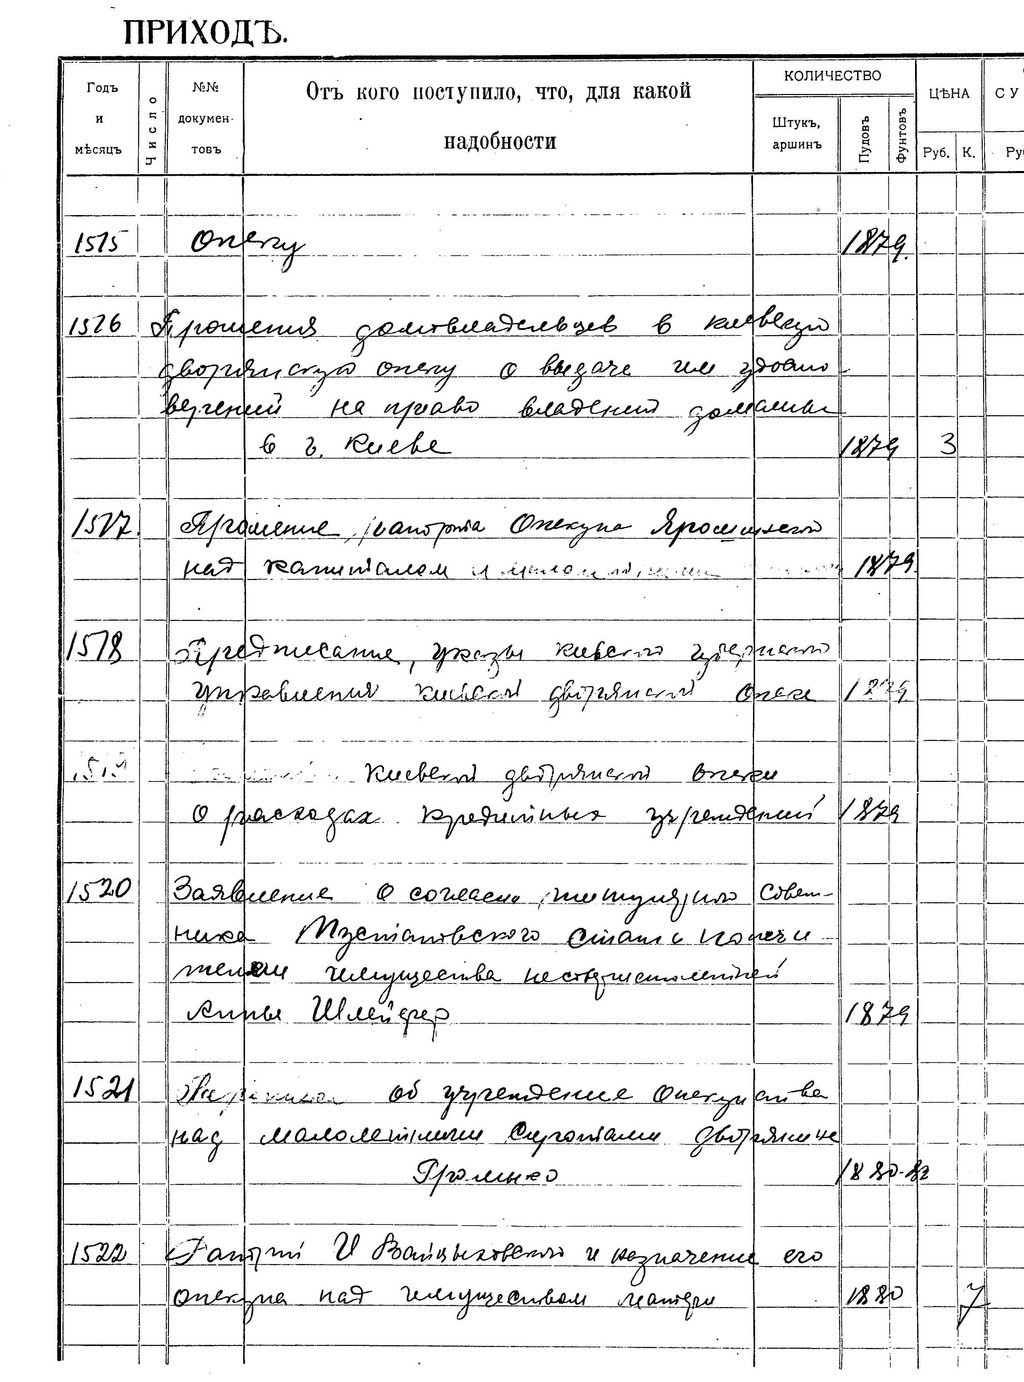 ПРИХОДЪ.
Годъ и мѣсяцъ
Число
№№ докумен- товъ
Отъ кого поступило, что, для какой надобности
КОЛИЧЕСТВО
Штукъ, аршинъ
Пудовъ
Фунтовъ
ЦѢНА
Руб. К.
СУ
Ру
1515 Опеку 1879.
1516 Прошения домовладельцев в киевскую
дворянскую опеку о выдаче им удосто
верений на право владений домами
в г. Киеве 1879 3
1517. Прошение, рапорта Опекуна
над капиталом и 1879.
1518 Предписание, указы киевского губернского
управления киевской дворянской опеке 1879
1519 Киевской дворянской опеки
о расходах кредитных учреждений 1879
1520 Заявление о согласии титулярного Совет-
ника Мустановского стать попечи
телем имущества несовершеннолетней
Анны Шлейфер 1879
1521 об учреждение Опекунства
над малолетними сиротами дворянина
Громыко 1880-82
1522 Рапорт И и назначение его
опекуна над имуществом матери 1880 7